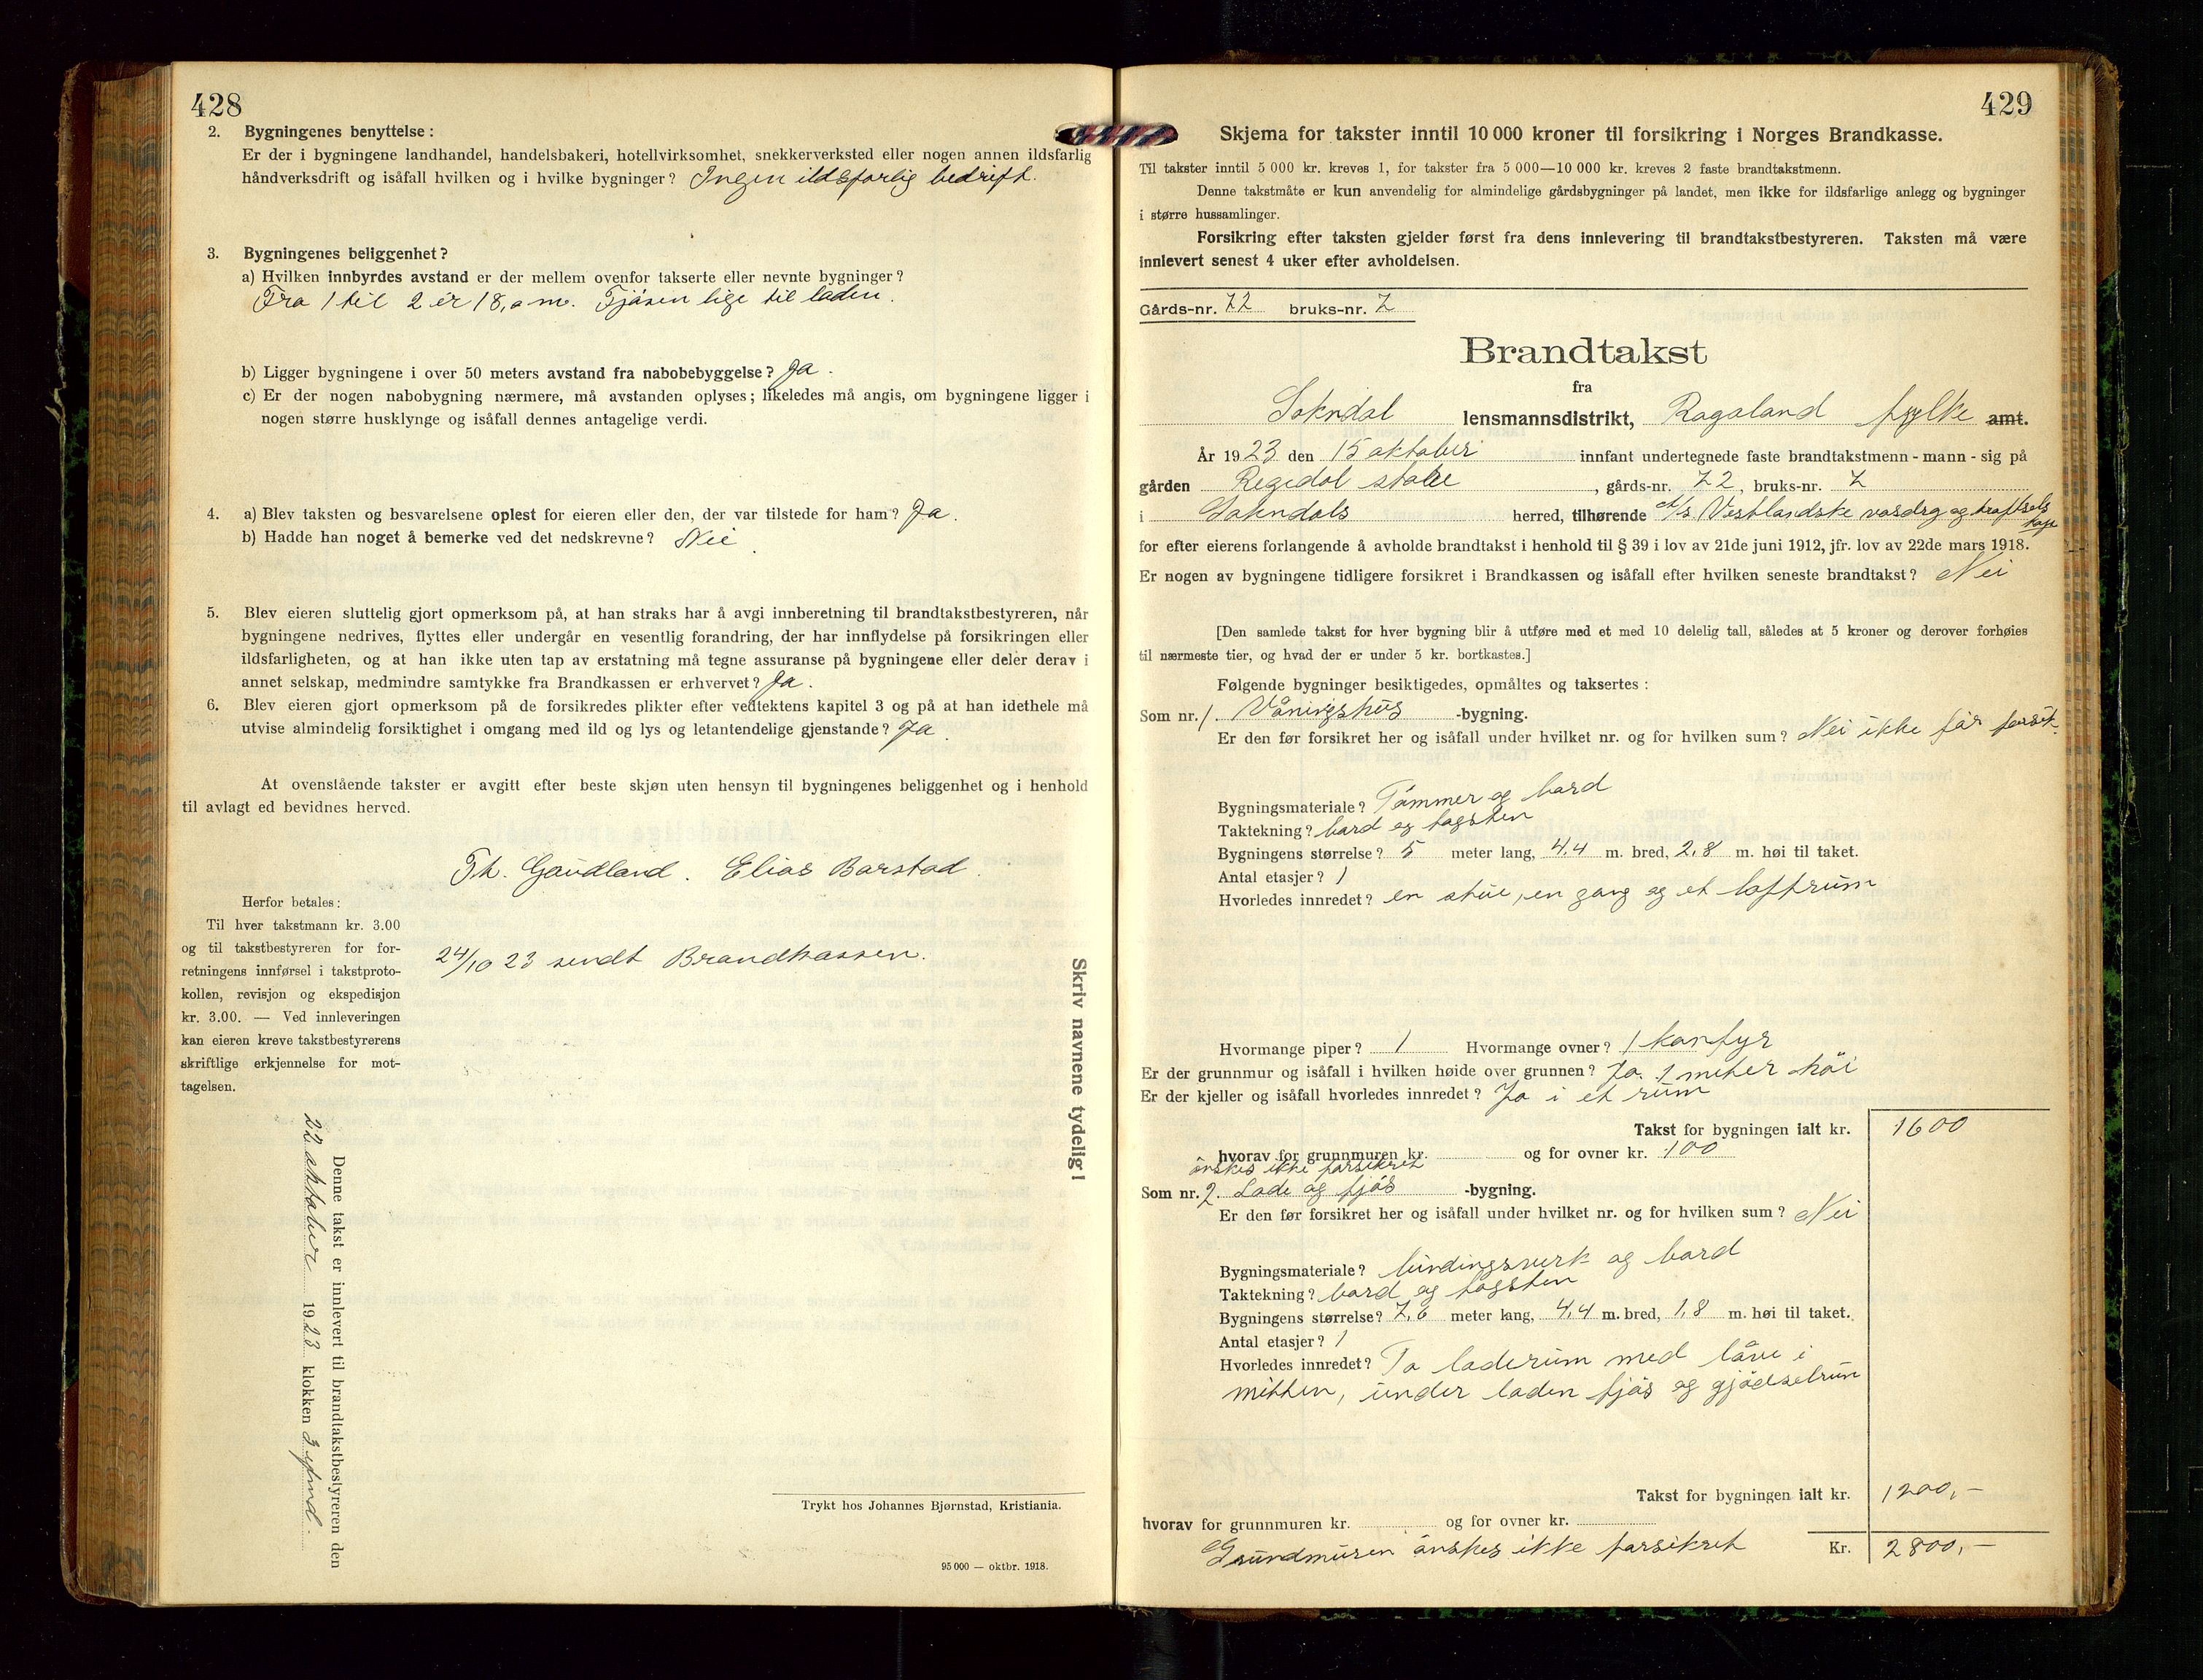 428
2. Bygningenes benyttelse :
Er der i bygningene landhandel, handelsbakeri, hotellvirksomhet, snekkerverksted eller nogen annen ildsfarlig
håndverksdrift og isåfall hvilken og i hvilke bygninger? Ingen ildsfarlig bedrift.
3. Bygningenes beliggenhet?
a) Hvilken innbyrdes avstand er der mellem ovenfor takserte eller nevnte bygninger?
Fra 1 til 2 er 18,0 m. Fjøsen lige til laden.
b) Ligger bygningene i over 50 meters avstand fra nabobebyggelse? Ja.
c) Er der nogen nabobygning nærmere, må avstanden oplyses; likeledes må angis, om bygningene ligger i
nogen større husklynge og isåfall dennes antagelige verdi.
4. a) Blev taksten og besvarelsene oplest for eieren eller den, der var tilstede for ham? Ja.
b) Hadde han noget å bemerke ved det nedskrevne? Nei
5. Blev eieren sluttelig gjort opmerksom på, at han straks har å avgi innberetning til brandtakstbestyreren, når
bygningene nedrives, flyttes eller undergår en vesentlig forandring, der har innflydelse på forsikringen eller
ildsfarligheten, og at han ikke uten tap av erstatning må tegne assuranse på bygningene eller deler derav i
annet selskap, medmindre samtykke fra Brandkassen er erhvervet? Ja.
6. Blev eieren gjort opmerksom på de forsikredes plikter efter vedtektens kapitel 3 og på at han idethele må
utvise almindelig forsiktighet i omgang med ild og lys og letantendelige gjenstande? Ja
At ovenstående takster er avgitt efter beste skjøn uten hensyn til bygningenes beliggenhet og i henhold
til avlagt ed bevidnes herved.
Th. Gaudland. Elias Barstad.
Herfor betales:
Til hver takstmann kr. 3.00
og til takstbestyreren for for-
retningens innførsel i takstproto-
kollen, revisjon og ekspedisjon
kr. 3.00. — Ved innleveringen
kan eieren kreve takstbestyrerens
skriftlige erkjennelse for mot-
tagelsen.
24/10 23 sendt Brandkassen.
Skriv navnene tydelig!
Denne takst er innlevert til brandtakstbestyreren den
22 oktober 1923 klokken 3 efmd.
Trykt hos Johannes Bjørnstad, Kristiania.
95 000 — oktbr. 1918.
429
Skjema for takster inntil 10 000 kroner til forsikring i Norges Brandkasse.
Til takster inntil 5 000 kr. kreves 1, for takster fra 5 000—10 000 kr. kreves 2 faste brandtakstmenn.
Denne takstmåte er kun anvendelig for almindelige gårdsbygninger på landet, men ikke for ildsfarlige anlegg og bygninger
i større hussamlinger.
Forsikring efter taksten gjelder først fra dens innlevering til brandtakstbestyreren. Taksten må være
innlevert senest 4 uker efter avholdelsen.
Gårds-nr. 72 bruks-nr. 7
Brandtakst
fra
Sokndal lensmannsdistrikt, Rogaland fylke amt.
År 1923 den 15 oktober innfant undertegnede faste brandtakstmenn - mann - sig på
gården Regedal , gårds-nr. 72, bruks-nr. 7
i Sokndals herred, tilhørende A/s Vestlandske vasdrg og kraftsels
kap
for efter eierens forlangende å avholde brandtakst i henhold til § 39 i lov av 21de juni 1912, jfr. lov av 22de mars 1918.
Er nogen av bygningene tidligere forsikret i Brandkassen og isåfall efter hvilken seneste brandtakst? Nei
[Den samlede takst for hver bygning blir å utføre med et med 10 delelig tall, således at 5 kroner og derover forhøies
til nærmeste tier, og hvad der er under 5 kr. bortkastes.]
Følgende bygninger besiktigedes, opmåltes og taksertes:
Som nr. 1. Våningshus -bygning.
Er den før forsikret her og isåfall under hvilket nr. og for hvilken sum? Nei ikke før forsik.
Bygningsmateriale? Tømmer og bord
Taktekning? bord og tagsten
Bygningens størrelse? 5 meter lang, 4,4 m. bred, 2,8 m. høi til taket.
Antal etasjer? 1
Hvorledes innredet? en stue, en gang og et loftrum
Hvormange piper? 1 Hvormange ovner? 1 komfyr
Er der grunnmur og isåfall i hvilken høide over grunnen? Ja. 1 meter høi
Er der kjeller og isåfall hvorledes innredet? Ja i et rum
Takst for bygningen ialt kr. 1600
hvorav for grunnmuren kr. og for ovner kr. 100
ønskes ikke forsikret
Som nr. 2. Lade og fjøs -bygning.
Er den før forsikret her og isåfall under hvilket nr. og for hvilken sum? Nei
Bygningsmateriale? bindingsverk og bord
Taktekning? bord og tagsten
Bygningens størrelse? 7,6 meter lang, 4,4 m. bred, 1,8 m. høi til taket.
Antal etasjer? 1
Hvorledes innredet? To laderum med låve i
mitten, under laden fjøs og gjødselrum
Takst for bygningen ialt kr. 1200,-
hvorav for grunnmuren kr. og for ovner kr.
Grundmuren ønskes ikke forsikret Kr. 2800,-